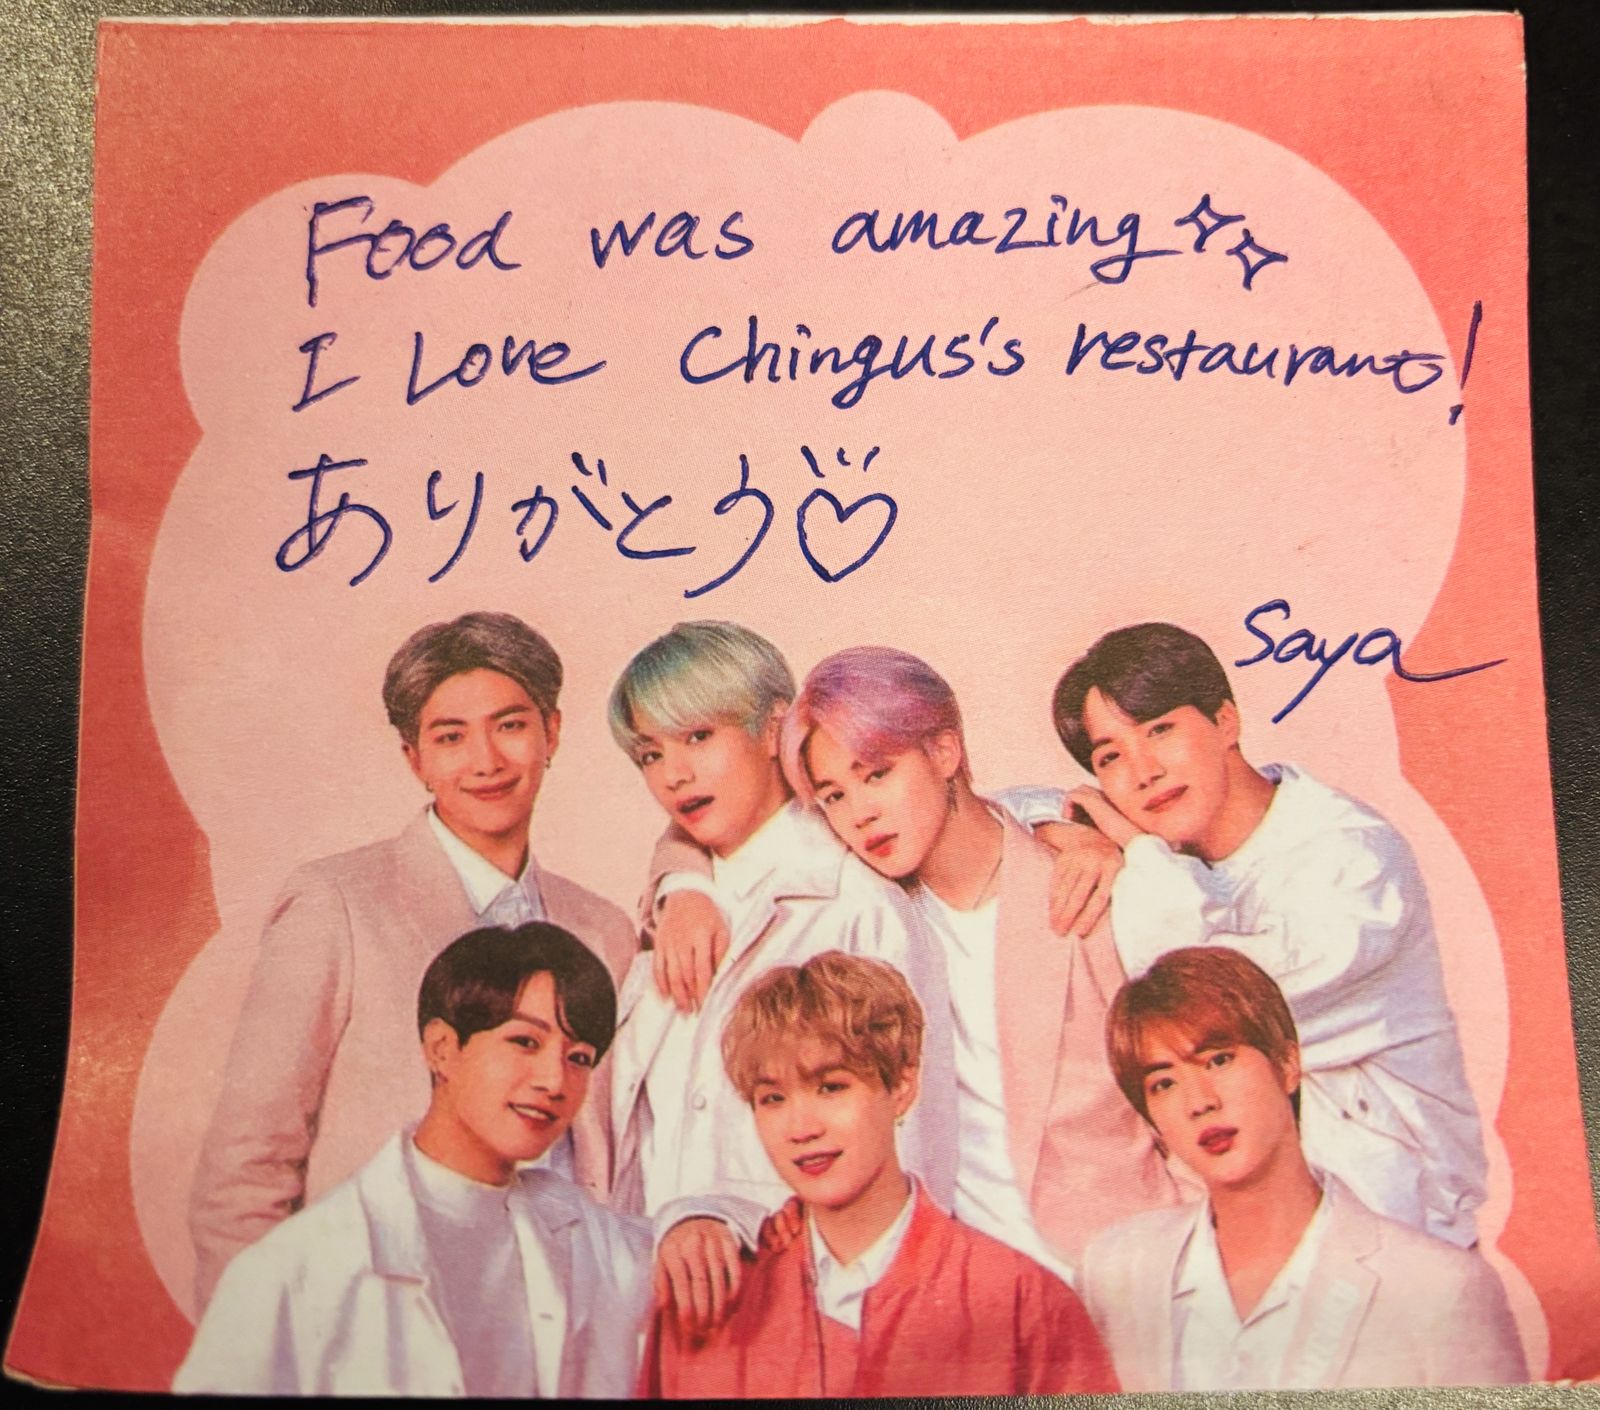 Food was amazing✧✧
I Love Chingus's restaurant!
ありがとう♡
Saya